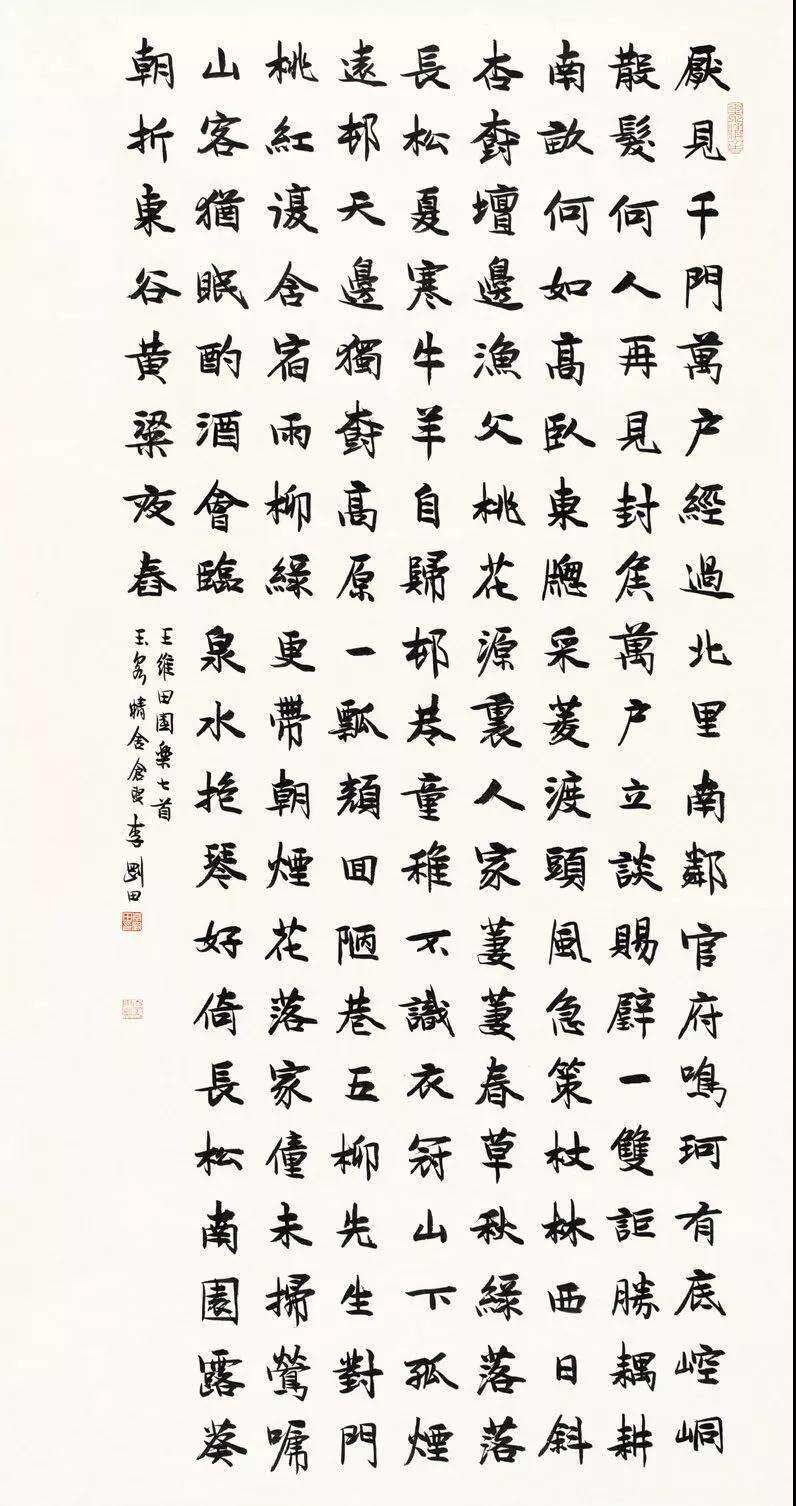 厭見千門萬户經過北里南鄰官府鳴珂有底崆峒
散髮何人再見封侯萬户立談賜璧一雙詎勝耦耕
南畝何如髙臥東牕采菱渡頭風急策杖林西日斜
杏樹壇邊漁父桃花源裏人家萋萋春草秋綠落落
長松夏寒牛羊自歸邨巷童稚不識衣冠山下孤煙
遠邨天邊獨樹髙原一瓢顏回陋巷五柳先生對門
桃紅復含宿雨柳綠更帶朝煙花落家僮未掃鶯啼
山客猶眠酌酒會臨泉水抱琴好倚長松南園露葵
朝折東谷黄粱夜舂
王維田園樂七首
精舍李剛田